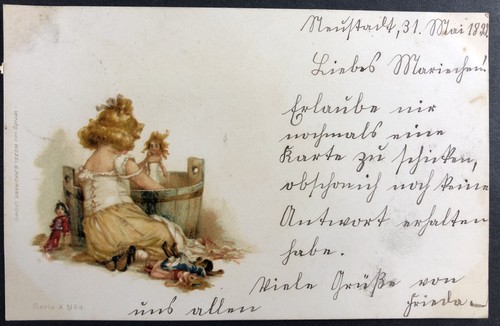 Neustadt, 31. Mai
Liebes Mariechen!
Erlaube mir
nochmals eine
Karte zu schicken,
obschonich noch keine
Antwort erhalten
habe.
Viele Grüße von
uns allen Frieda